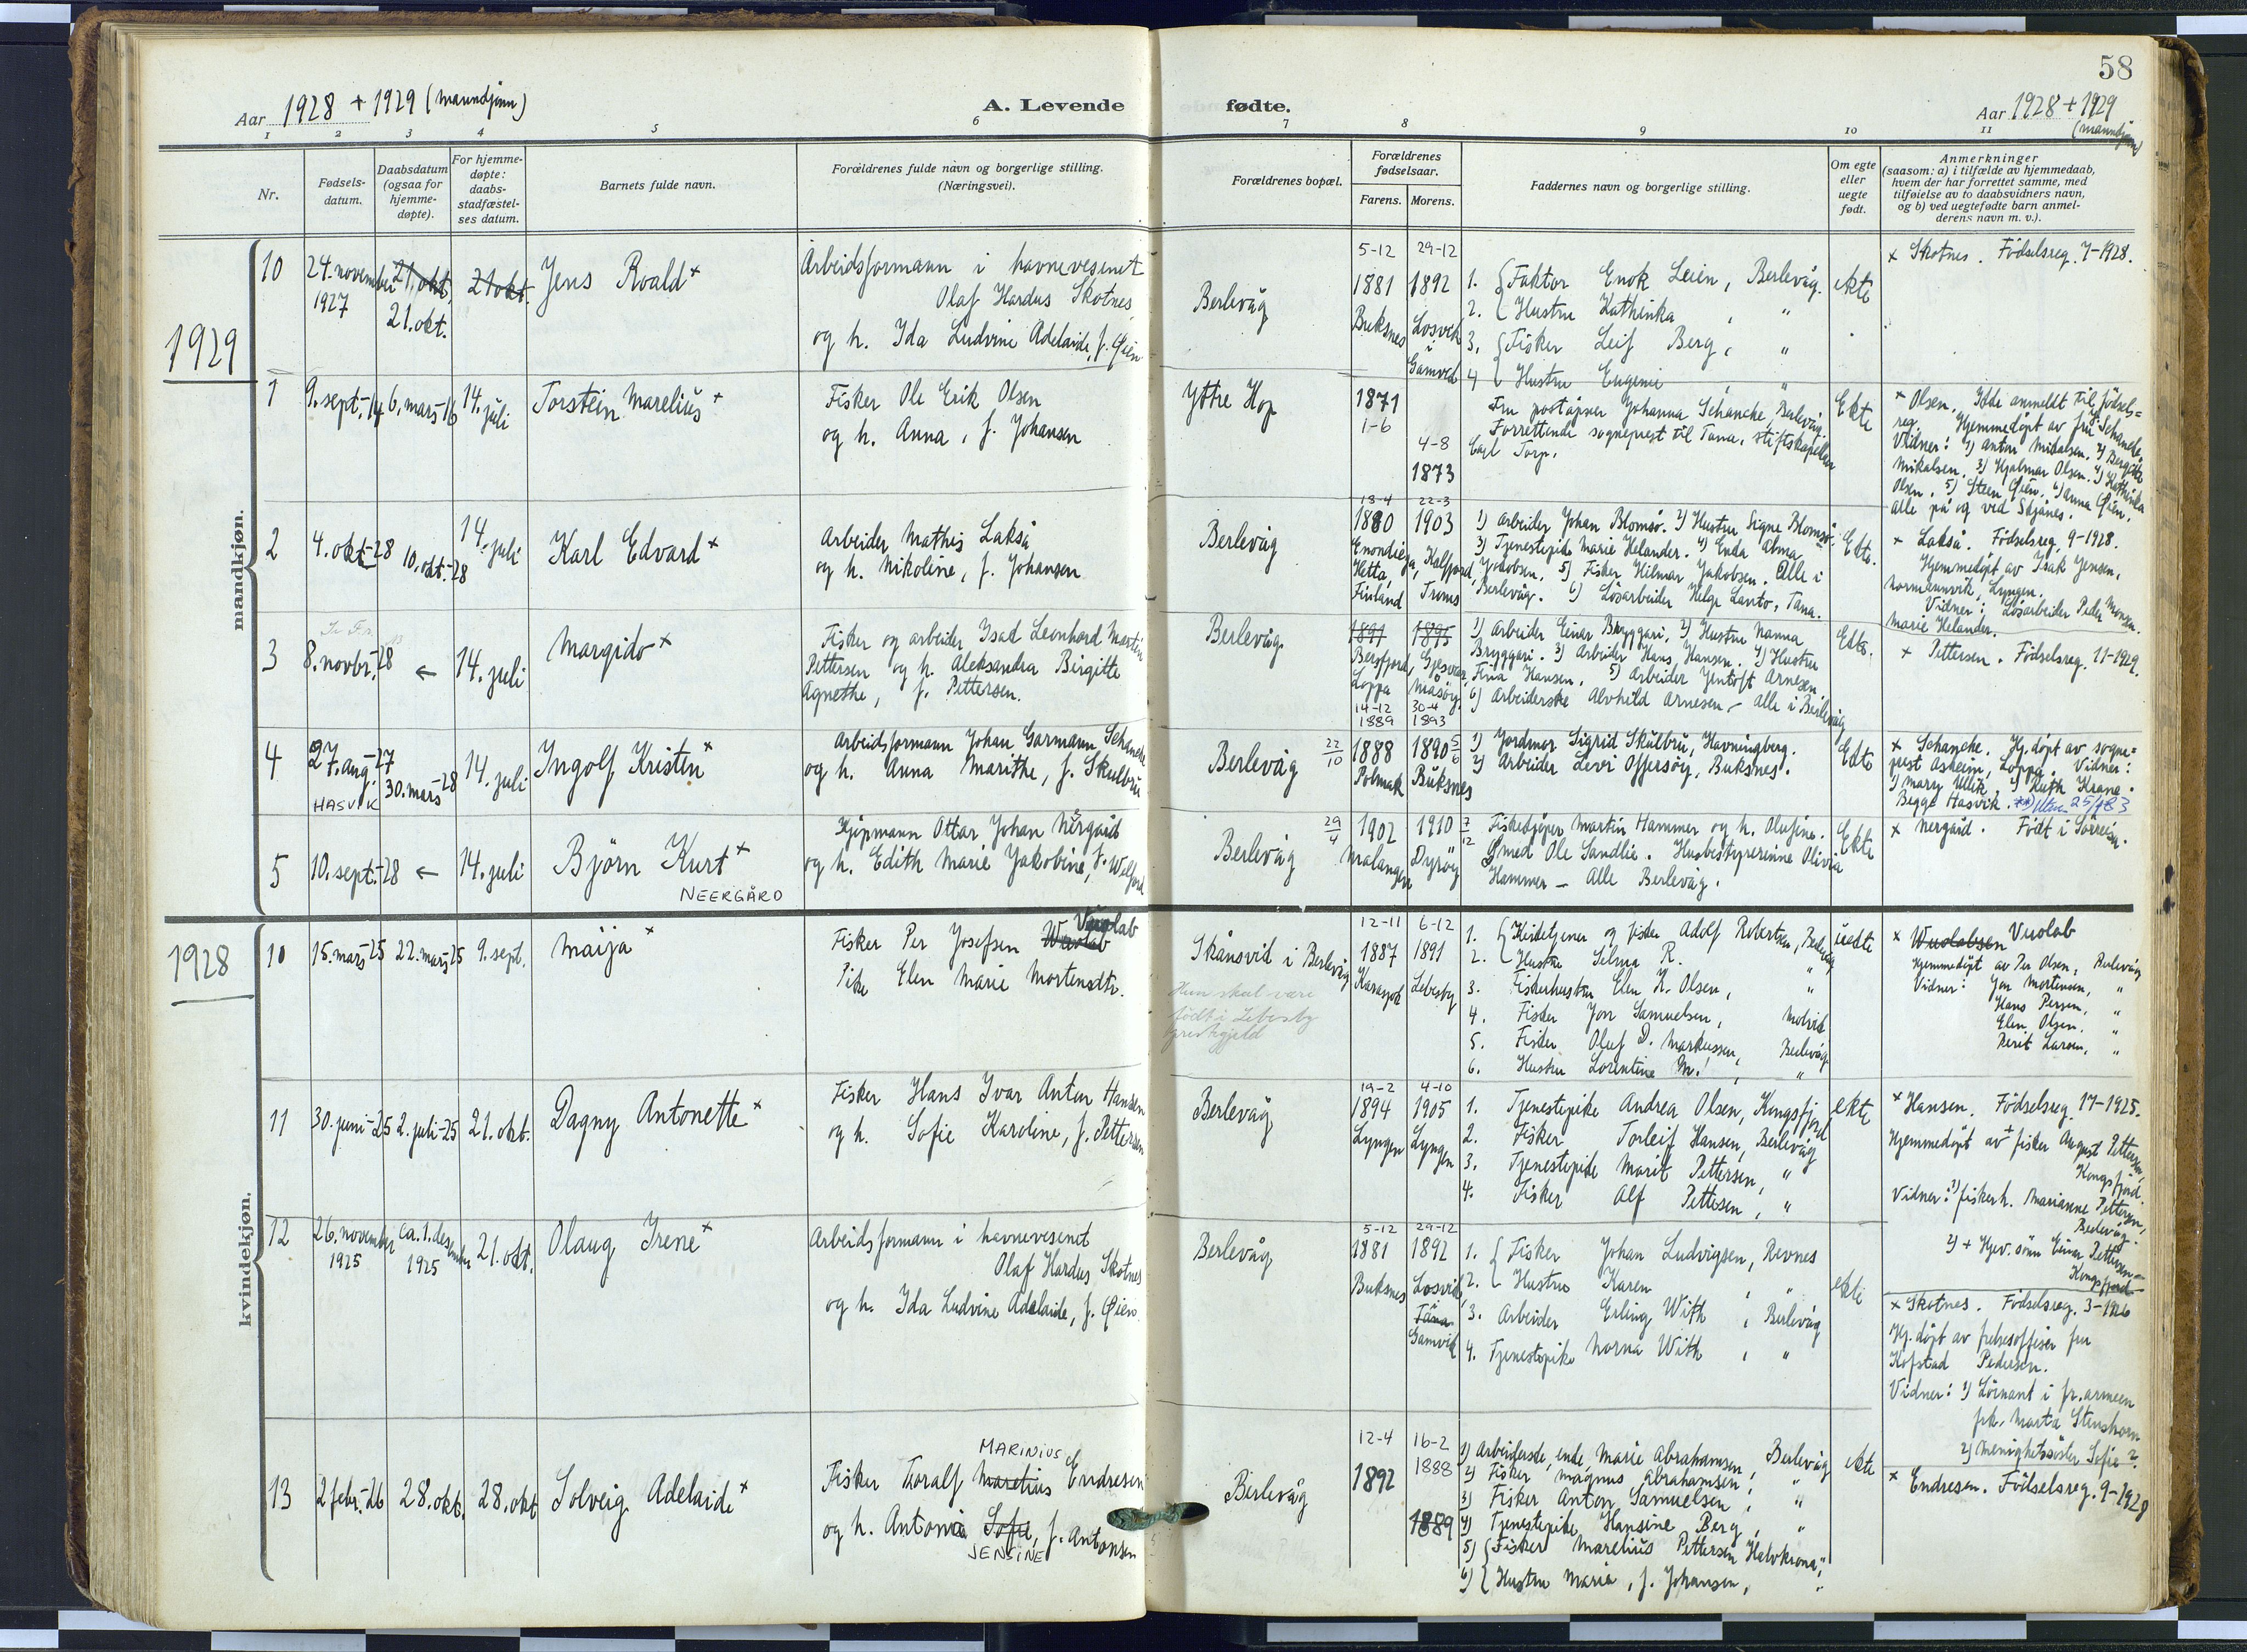 58
Aar 1928 + 1929 (mannkjønn)
A. Levende fødte.
Aar 1928 + 1929
(mannkjønn)
1 2 3 4 5 6 7 8 9 10 11
Nr.
Fødsels-
datum.
Daabsdatum
(ogsaa for
hjemme-
døpte).
For hjemme-
døpte:
daabs-
stadfæstel-
ses datum.
Barnets fulde navn.
Forældrenes fulde navn og borgerlige stilling.
(Næringsvei).
Forældrenes bopæl.
Forældrenes
fødselsaar.
Farens. Morens.
Faddernes navn og borgerlige stilling.
Om egte
eller
uegte
født.
Anmerkninger
(saasom: a) i tilfælde av hjemmedaab,
hvem der har forrettet samme, med
tilføielse av to daabsvidners navn,
og b) ved uegtefødte barn anmel-
derens navn m. v.).
mandkjøn.
10
24. november
1927
21. okt.
21. okt.
21 okt.
Jens Roald x
Arbeidsformann i havnevesenet
Olaf Hardus Skotnes
og h. Ida Ludvine Adelaide, f. Øien
Berlevåg
5-12
1881
Buksnes
29-12
1892
Losvik
i
Gamvik
1. Faktor Enok Leien, Berlevåg.
2. Hustru Kathinka, "
3. Fisker Leif Berg, "
4 Hustru Eugenie, "
ekte
x Skotnes. Fødselsreg. 7-1928.
1929
1
9. sept.-14
6. mars-16
14. juli
Torstein Marelius x
Fisker Ole Erik Olsen
og h. Anna, f. Johansen
Yttre Hop
1871
1-6
4-8
1873
Fru poståpner Johanna Schancke, Berlevåg.
Forrettende sogneprest til Tana, stiftskapellan
Torp.
Ekte
x Olsen. Ikke anmeldt til fødsels=
reg. Hjemmedøpt av fru Schancke.
Vidner: 1) Anton Mikalsen. 2) Bergitte
Mikalsen. 3) Hjalmar Olsen. 4) Kathinka
Olsen. 5) Steen Øien. 6) Anna Øien.
Alle på og ved Skjånes.
2
4. okt.-28
10. okt.-28
14. juli
Karl Edvard x
Arbeider Mathis Lakså
og h. Nikoline, f. Johansen
Berlevåg
18-4
1880
Hetta,
Finland
22-3
1903
Kalfjord,
Troms
1) Arbeider Johan Blomsø. 2) Hustru Signe Blomsø.
3) Tjenestepike Marie Helander. 4) Enke Alma
Jakobsen. 5) Fisker Hilmar Jakobsen. Alle i
Berlevåg. 6) Løsarbeider Helge Lanto, Tana.
Ekte.
x Lakså. Fødselsreg. 9-1928.
Hjemmedøpt av Isak Jensen,
Normannvik, Lyngen.
Vidner: Løsarbeider Peder Monsen.
Marie Helander.
3
8. novbr.-28
←
14. juli
Margido x
Fisker og arbeider Isak Leonhard Martin
Pettersen og h. Aleksandra Birgitte
Agnethe, f. Pettersen.
Berlevåg
1891
Bergfjord,
Loppa
14-12
1889
1895
Gjesvær,
Måsøy.
30-4
1893
1) Arbeider Einar Bryggari. 2) Hustru Nanna
Bryggari. 3) Arbeider Hans Hansen. 4) Hustru
Fina Hansen. 5) Arbeider Jentoft Arnesen.
6) Arbeiderske Alvhild Arnesen - Alle i Berlevåg
Ekte.
x Pettersen. Fødselsreg. 11-1929.
4
27. aug.-27
HASVIK
30. mars-28
14. juli
Ingolf Kristen x
Arbeidsformann Johan Garmann Schancke
og h. Anna Marithe, f. Skulbru
Berlevåg
22/10 1888
Polmak
1890 5/6
Buksnes
1) Jordmor Sigrid Skulbru, Havningberg.
2) Arbeider Levi Offersøy, Buksnes.
Ekte
x Schancke. Hj. døpt av sogne=
prest Asheim, Loppa. Vidner:
1) Mary Ullik, 2) Ruth Krane.
Begge Hasvik.
5
10. sept.-28
←
14. juli
Bjørn Kurt x
NEERGÅRD
Kjøpmann Ottar Johan Nergård
og h. Edith Marie Jakobine, f.
Berlevåg
29/4 1902
Malangen
1910 7/12
Dyrøy
Fiskekjøper Martin Hammer og h. Olufine.
Smed Ole Sandlie. Husbestyrerinne Olivia
Hammer - Alle Berlevåg.
Ekte
x Nergård. Født i Sørreisa.
1928
kvindekjøn.
10
15. mars-25
22. mars-25
9. sept.
Maija x
Fisker Per Josefsen Wuolab Vuolab
Pike Elen Marie Mortensdtr.
Skånsvik i Berlevåg
Hun skal være
født i Lebesby
prestegjeld
12-11
1887
Karasjok
6-12
1891
Lebesby
1. Kirketjener og fisker Adolf Robertsen, Berlevåg
2. Hustru Selma R. "
3. Fiskerhustru Elen K. Olsen, "
4. Fisker Jon Samuelsen, Molvik
5. Fisker Oluf D. Markussen, Berlevåg
6. Hustru Lorentine M. "
uekte
x Wuolabsen Vuolab
Hjemmedøpt av Per Olsen, Berlevåg
Vidner: Jon Mortensen, "
Hans Persen, "
Elen Olsen, "
Berit Larsen, "
11
30. juni-25
2. juli-25
21. okt.
Dagny Antonette x
Fisker Hans Ivar Anton Hansen
og h. Sofie Karoline, f. Pettersen
Berlevåg
19-2
1894
Lyngen
4-10
1905
Lyngen
1. Tjenestepike Andrea Olsen, Kongsfjord
2. Fisker Torleif Hansen, Berlevåg
3. Tjenestepike Marit Pettersen, "
4. Fisker Alf Pettersen, "
ekte
x Hansen. Fødselsreg. 17-1925.
Hjemmedøpt av fisker August Pettersen,
Kongsfjord.
Vidner: 1) fiskerh. Marianne Pettersen,
Berlevåg.
2) + Hjev. sønn Einar Pettersen-
Kongsfjord
12
26. november
1925
ca. 1. desember
1925
21. okt.
Olaug Irene x
Arbeidsformann i havnevesenet
Olaf Hardus Skotnes
og h. Ida Ludvine Adelaide, f. Øien
Berlevåg
5-12
1881
Buksnes
29-12
1892
Losvik,
i
Tana
Gamvik
1. Fisker Johan Ludvigsen, Revnes
2. Hustru Karen, "
3. Arbeider Erling With, Berlevåg
4. Tjenestepike Norna With, "
ekte
x Skotnes. Fødselsreg. 3-1926
Hj. døpt av frelsesoffiser fru
Kofstad Pedersen.
Vidner: 1) Løitnant i fr. armeen
frk. Marta
2) Menighetssøster Sofie ?
13
2 febr.-26
28. okt.
28. okt
Solveig Adelaide x
Fisker Toralf Marelius MARINIUS Endresen
og h. Antonia Sofie, JENSINE f. Antonsen
Berlevåg
12-4
1892
16-2
1888
1889
1) Arbeiderske, enke, Marie Abrahamsen, Berlevåg
2) Fisker Magnus Abrahamsen, "
3) Fisker Anton Samuelsen, "
4) Tjenestepike Hansine Berg, "
5) Fisker Marelius Pettersen Halvkrona, "
6) Hustru Maria, f. Johansen, "
ekte
x Endresen. Fødselsreg. 9-1928